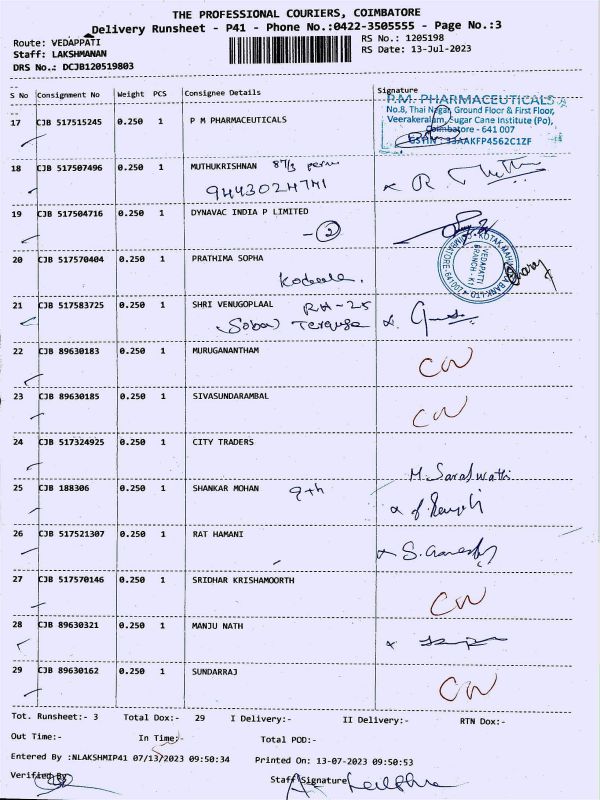 THE PROFESSIONAL COURIERS, COIMBATORE
Delivery Runsheet - P41 - Phone No.:0422-3505555 - Page No.:3
Route: VEDAPPATI
RS No.: 1205198
Staff: LAKSHMANAN
RS Date: 13-Jul-2023
DRS No.: DCJB120519803
S No Consignment No Weight PCS Consignee Details Signature
17 CJB 517515245 0.250 1 P M PHARMACEUTICALS
P.M. PHARMACEUTICALS
No.8, Thai Nagar, Ground Floor & First Floor,
Veerakeralam, Sugar Cane Institute (Po),
Coimbatore - 641 007
GSTIN : 33AAKFP4562C1ZF
18 CJB 517507496 0.250 1 MUTHUKRISHNAN
9443024741
19 CJB 517504716 0.250 1 DYNAVAC INDIA P LIMITED
- 2
20 CJB 517570404 0.250 1 PRATHIMA SOPHA
KOTAK MAHINDRA BANK LTD
VEDAPATTI
BRANCH - K1
COIMBATORE-641007
21 CJB 517583725 0.250 1 SHRI VENUGOPLAAL RH-25
22 CJB 89630183 0.250 1 MURUGANANTHAM CW
23 CJB 89630185 0.250 1 SIVASUNDARAMBAL CW
24 CJB 517324925 0.250 1 CITY TRADERS
M. Saraswathi
25 CJB 188306 0.250 1 SHANKAR MOHAN 9th
26 CJB 517521307 0.250 1 RAT HAMANI
S. Ganesh
27 CJB 517570146 0.250 1 SRIDHAR KRISHAMOORTH CW
28 CJB 89630321 0.250 1 MANJU NATH
29 CJB 89630162 0.250 1 SUNDARRAJ CW
Tot. Runsheet:- 3 Total Dox:- 29 I Delivery:- II Delivery:- RTN Dox:-
Out Time:- In Time:- Total POD:-
Entered By :NLAKSHMIP41 07/13/2023 09:50:34 Printed On: 13-07-2023 09:50:53
Verified By Staff Signature